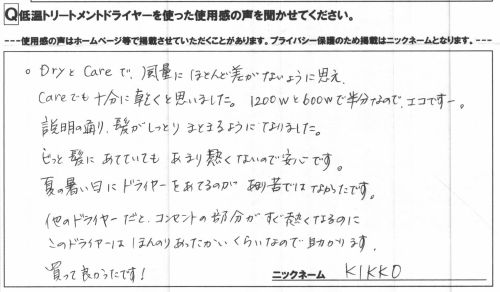 Q低温トリートメントドライヤーを使った使用感の声を聞かせてください。
---使用感の声はホームページ等で掲載させていただくことがあります。プライバシー保護のため掲載はニックネームとなります。---
。DryとCareで、風量にほとんど差がないように思え、
Careでも十分に乾くと思いました。1200wと600wで半分なので、エコですー。
説明の通り、髪がしっとりまとまるようになりました。
ずっと髪にあてていてもあまり熱くないので安心です。
夏の暑い日にドライヤーをあてるのが苦ではなかったです。
他のドライヤーだと、コンセントの部分がすぐ熱くなるのに
このドライヤーはほんのりあったかいくらいなので助かります。
買って良かったです!
ニックネーム KIKKO